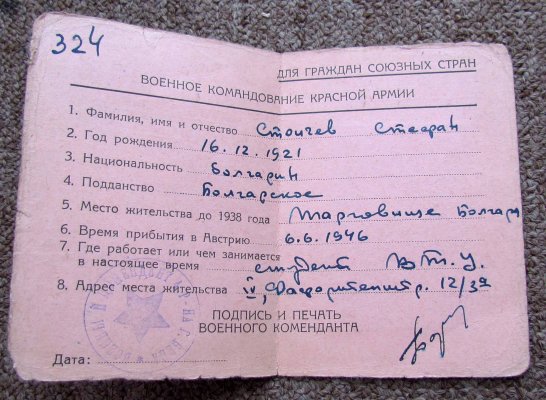 324
ДЛЯ ГРАЖДАН СОЮЗНЫХ СТРАН
ВОЕННОЕ КОМАНДОВАНИЕ КРАСНОЙ АРМИИ
1. Фамилия, имя и отчество Стоичев Стефан
2. Год рождения 16.12.1921
3. Национальность Болгарин
4. Подданство Болгарское
5. Место жительства до 1938 года Тарговище Болгар
6. Время прибытия в Австрию 6.6.1946
7. Где работает или чем занимается
в настоящее время студент В.Т.У.
8. Адрес места жительства IV, 12/32
ПОДПИСЬ И ПЕЧАТЬ
ВОЕННОГО КОМЕНДАНТА
Дата: